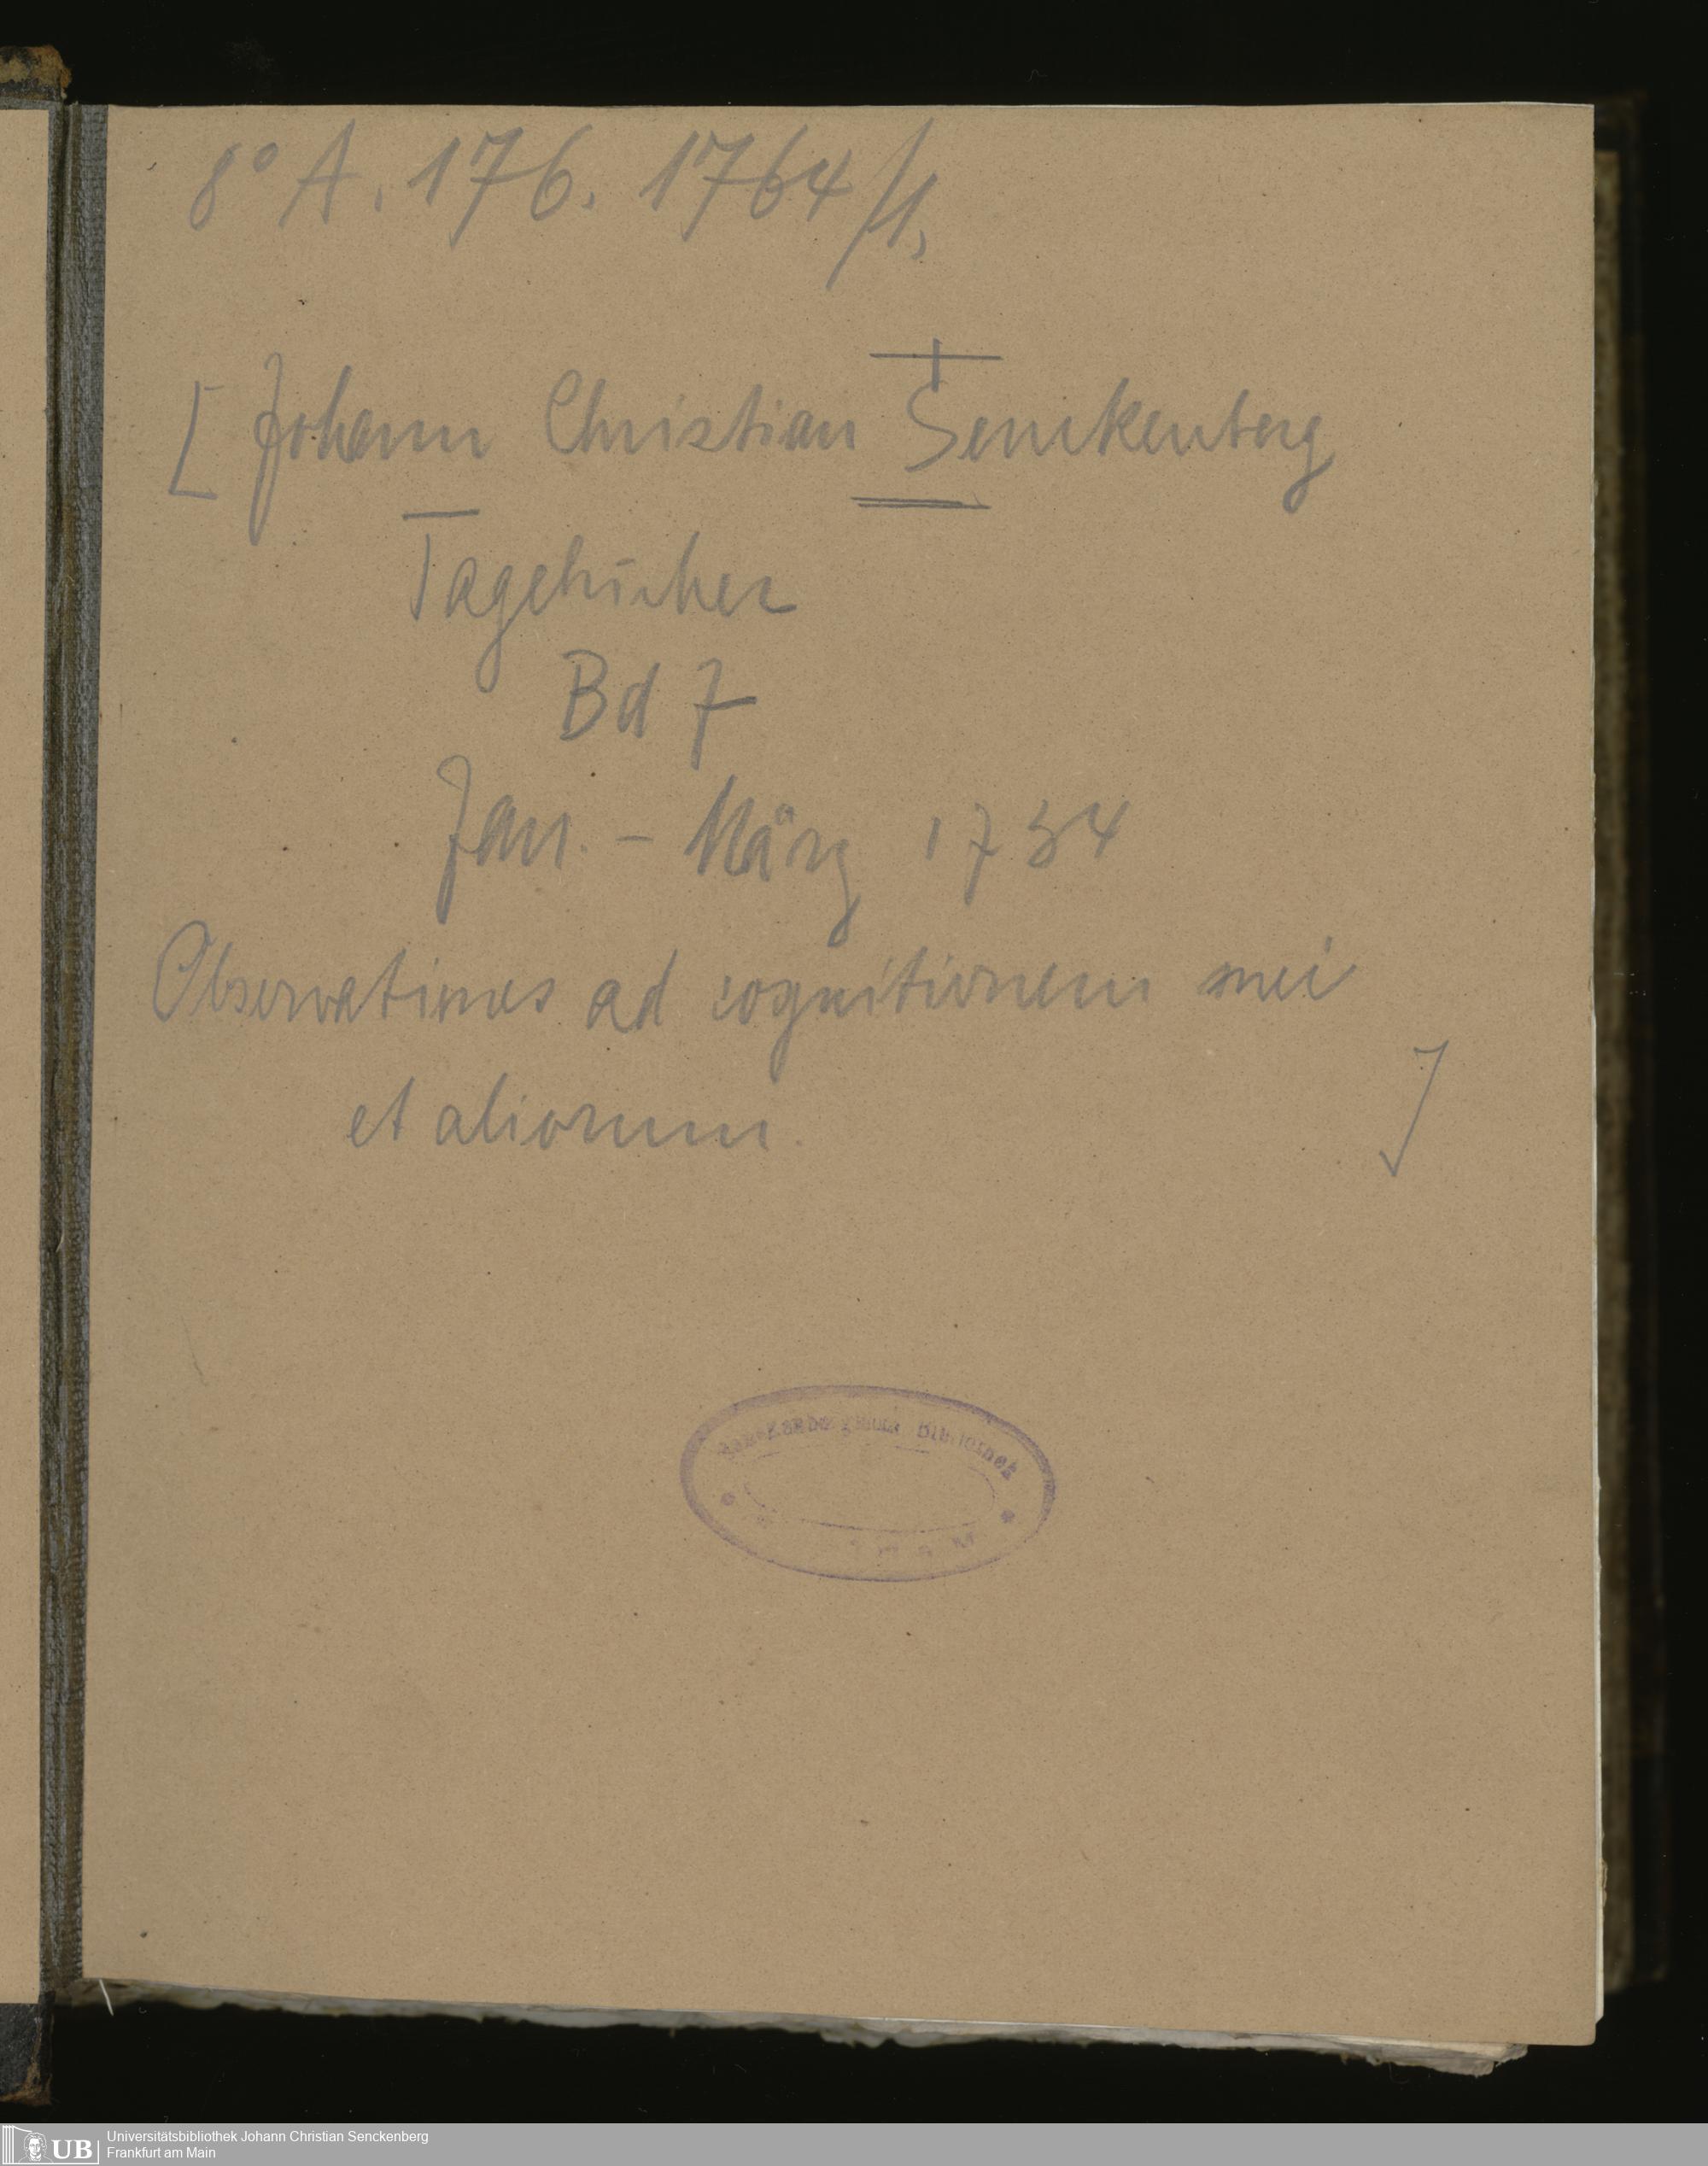 8° A. 176. 1764/1,
[Johann Christian Senckenberg
Tagebücher
Bd 7
Jan. - März 1734
Observationes ad cognitionem mei
et aliorum ]
Senckenbergische Bibliothek
UB
Universitätsbibliothek Johann Christian Senckenberg
Frankfurt am Main